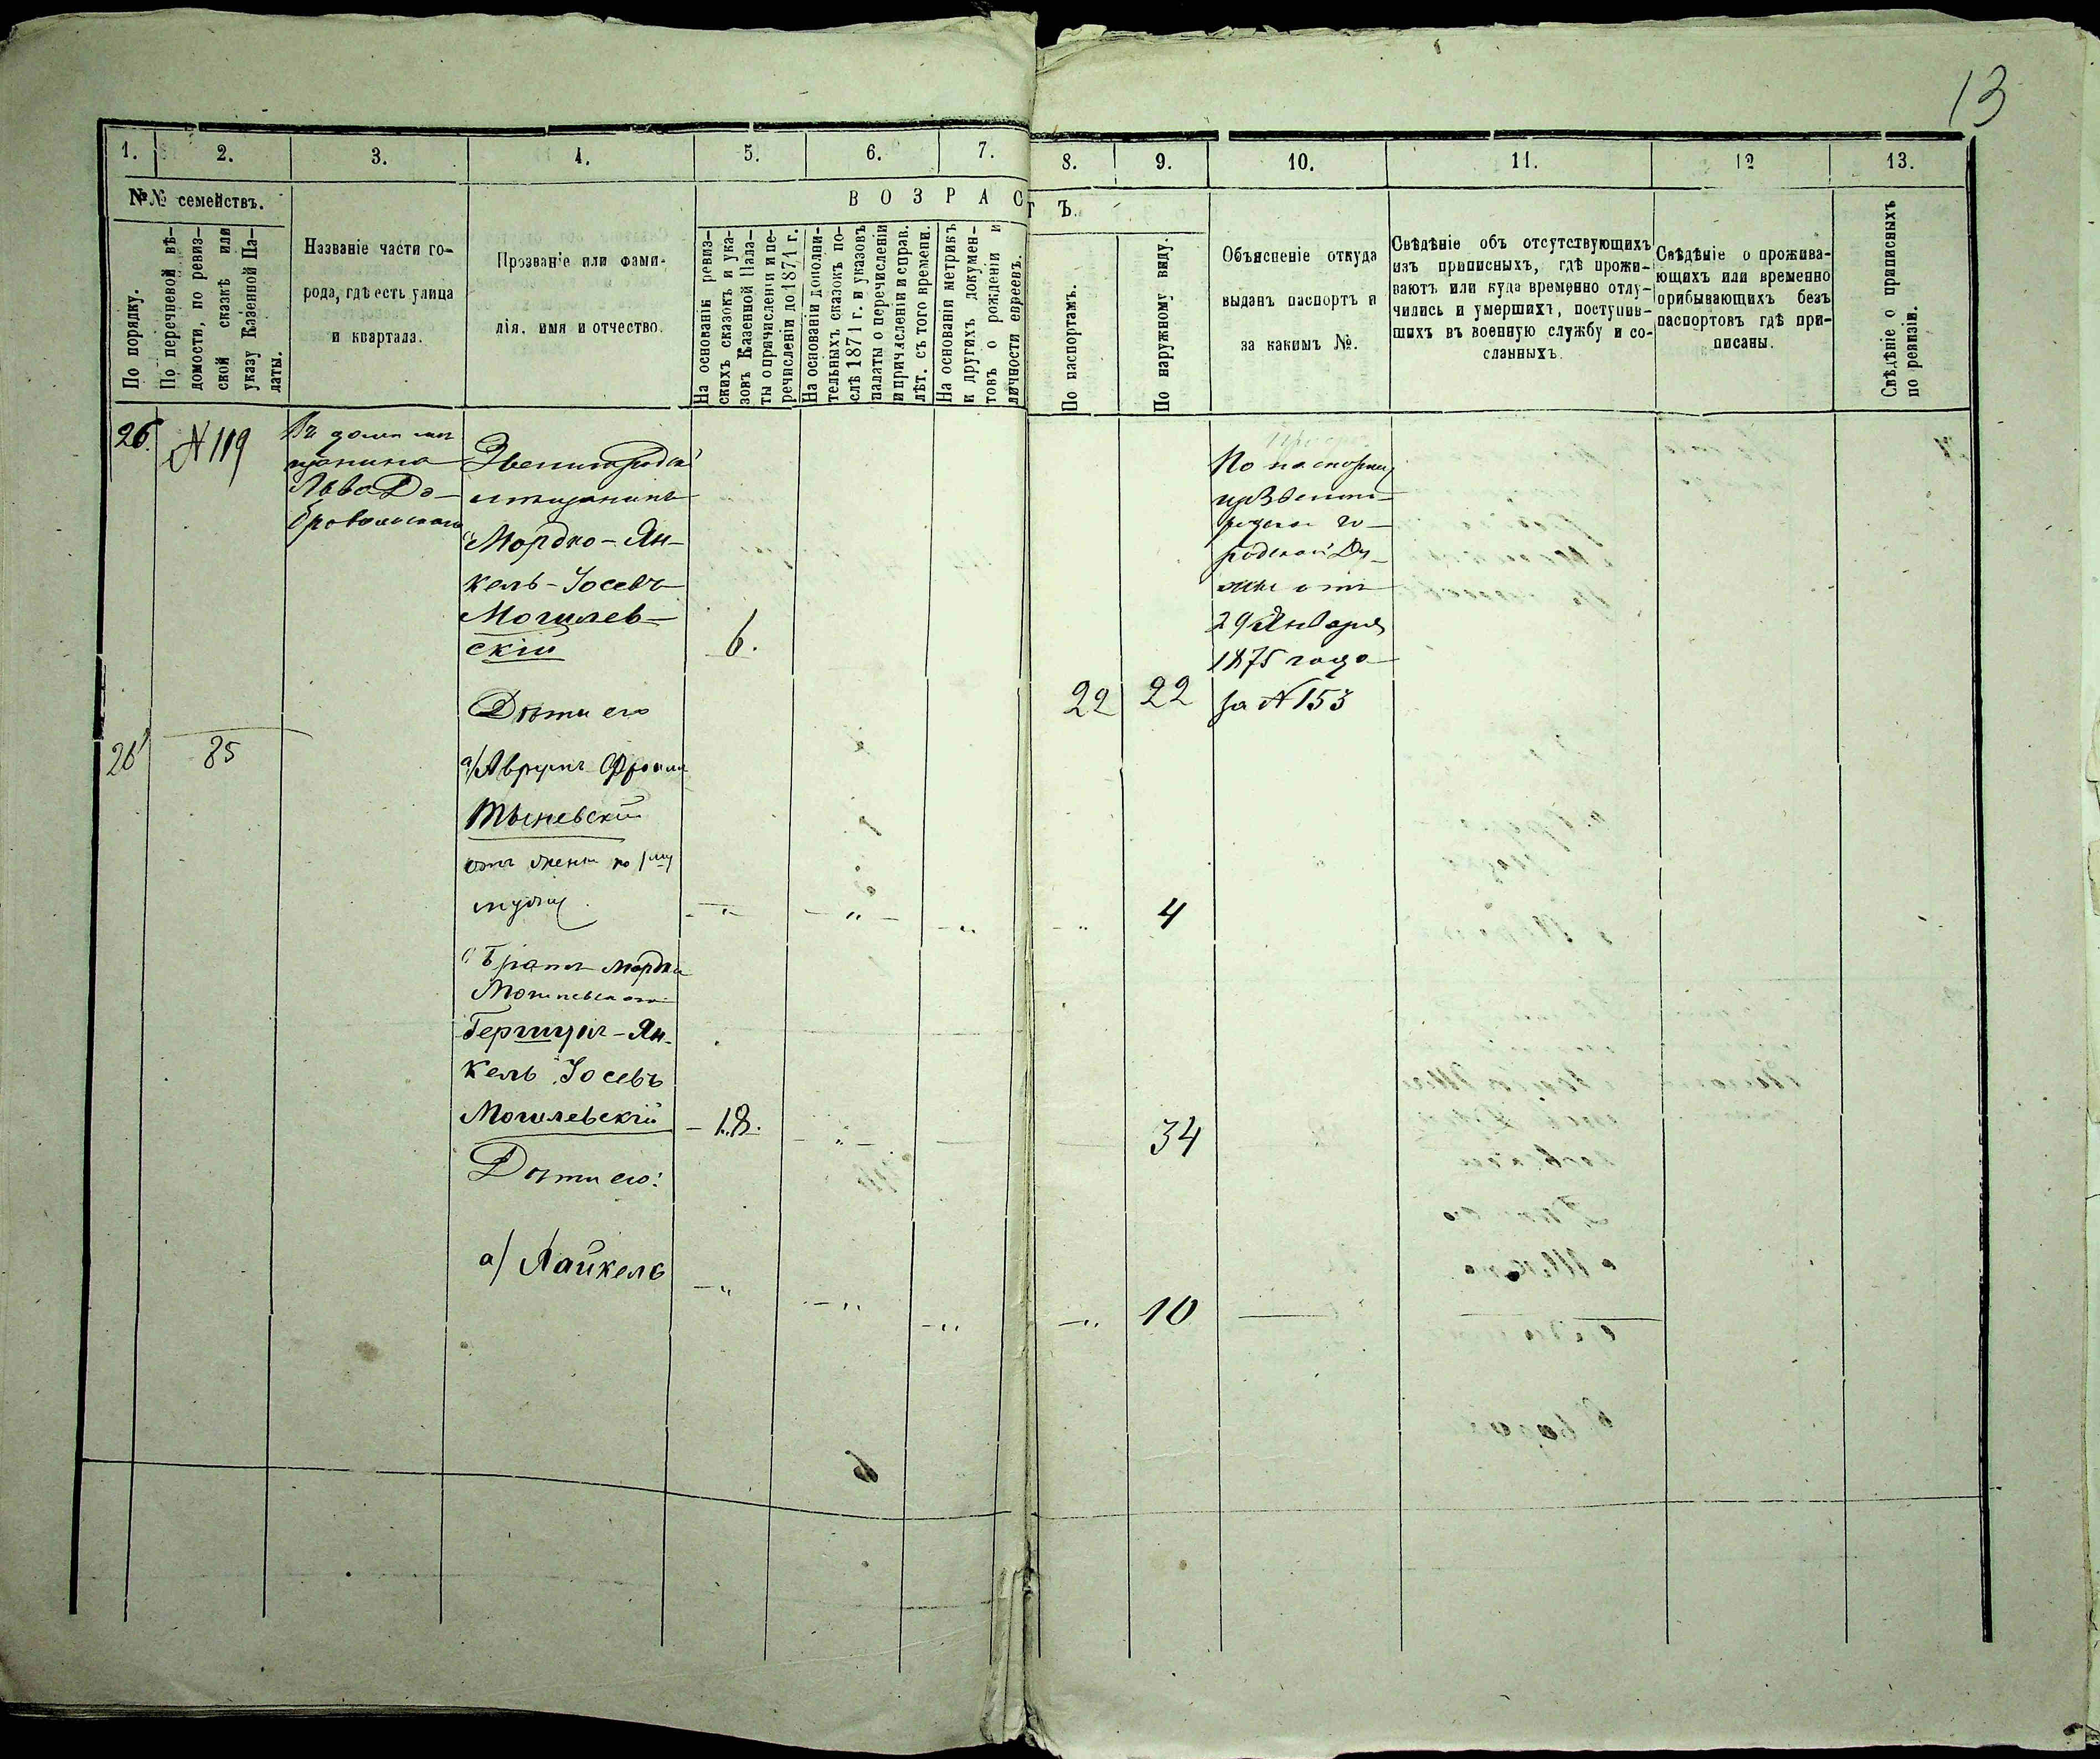 13
1. 2. 3. 4. 5. 6. 7. 8. 9. 10. 11. 12 13.
№№ семействъ.
В О З Р А С Т Ъ.
По порядку.
По перечневой вѣ-
домости, по ревиз-
ской сказкѣ или
указу Казенной Па-
латы.
Названіе части го-
рода, гдѣ есть улица
и квартала.
Прозваніе или фами-
лія. имя и отчество.
На основаніи ревиз-
скихъ сказокъ и ука-
зовъ Казенной Пала-
ты о причисленіи и пе-
речисленіи до 1871 г.
На основаніи дополни-
тельныхъ сказокъ по-
слѣ 1871 г. и указовъ
палаты о перечисленіи
и причисленіи и справ.
лѣт. съ того времени.
На основаніи метрикъ
и другихъ докумен-
товъ о рожденіи и
личности евреевъ.
По паспортамъ.
По наружному виду.
Объясненіе откуда
выданъ паспортъ и
за какимъ №.
Свѣдѣніе объ отсутствующихъ
изъ приписныхъ, гдѣ прожи-
ваютъ или куда временно отлу-
чились и умершихъ, поступив-
шихъ въ военную службу и со-
сланныхъ.
Свѣдѣніе о прожива-
ющихъ или временно
прибывающихъ безъ
паспортовъ гдѣ при-
писаны.
Свѣдѣніе о приписныхъ
по ревизіи.
26. N 119
Въ домѣ мѣ
щанина
Льва До-
бровольскаго
Звенигородскій
мѣщанинъ
Мордко-Ян-
кель-Іосевъ
Могилев-
скій
6.
22 22
По паспорту
изъ Звениго-
родской го-
родской Ду-
мы отъ
29 Января
1875 года
за N 153
Дѣти его
26 85
а/ Аврумъ Фроим
Тыневскій
отъ жены по 1му
мужу.
4
Братъ Мордка
Могилевскаго
Гершунъ-Ян-
кель Іосевъ
Могилевскій
18.
34
Дѣти его:
а/ Лайкель
10